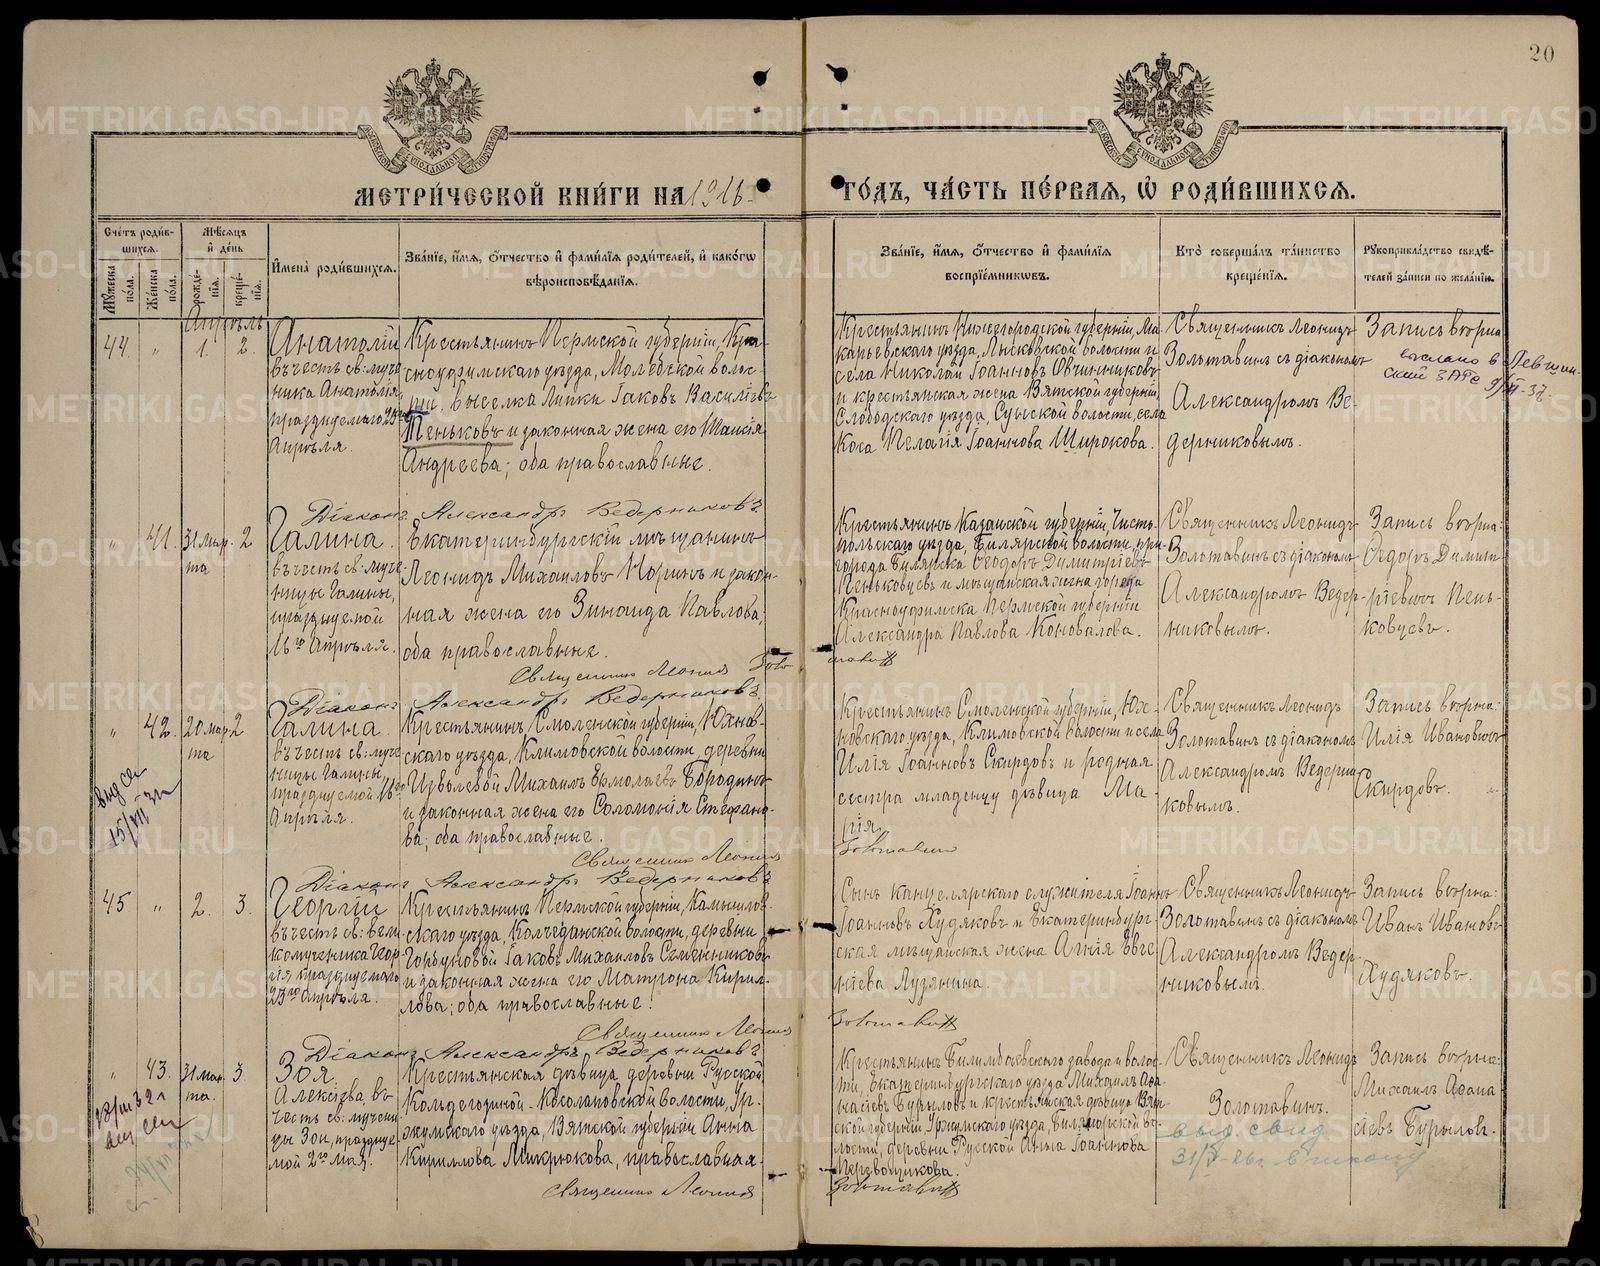 20
МЕТРИ́ЧЕСКОЙ КНИ́ГИ НА 1916
ГО́ДЪ, ЧА́СТЬ ПЕ́РВАЯ, Ѡ҆ РОДИ́ВШИХСЯ.
Сче́тъ роди́в-
шихся.
Му́жеска по́ла.
Же́нска по́ла.
Мѣ́сяцъ
и҆ де́нь
рожде́-
нїя.
креще́-
нїя.
И҆мена̀ роди́вшихся.
Зва́нїе, и҆́мя, ѻ҆́тчество и҆ фами́лїя роди́телей, и҆ како́гѡ
вѣроисповѣ́данїя.
Зва́нїе, и҆́мя, ѻ҆́тчество и҆ фами́лїя
воспрїе́мникѡвъ.
Кто̀ соверша́лъ та́инство
креще́нїя.
Рꙋкоприкла́дство свидѣ́-
телей за́писи по жела́нїю.
Апрѣль
44.
"
1.
2.
Анатолій
въ честь св: муче-
ника Анатолія,
празднуемаго 23го
Апрѣля.
Крестьянинъ Пермской губерніи, Кра-
сноуфимскаго уѣзда, Молебской волос-
ти, выселка Липки Іаковъ Василіевъ
Теньковъ и законная жена его Таисія
Андреева; оба православные.
Крестьянинъ Нижегородской губерніи, Ма-
карьевскаго уѣзда, Лысковской волости и
села Николай Іоанновъ Овчинниковъ
и крестьянская жена Вятской губерніи,
Слободскаго уѣзда, Сунской волости, села
Коса Пелагія Іоаннова Широкова.
Священникъ Леонидъ
Золотавинъ съ діакономъ
Александромъ Ве-
дерниковымъ.
Запись вѣрна
выслано в Левшин-
ский ЗАГС
Діаконъ Александръ Ведерниковъ
"
41.
31 мар-
та
2
Галина.
въ честь св: муче-
ницы Галины,
празднуемой
16го Апрѣля.
Екатеринбургскій мѣщанинъ
Леонидъ Михаиловъ Норинъ и закон-
ная жена его Зинаида Павлова;
оба православные.
Священникъ Леонид Золо
тавин
Крестьянинъ Казанской губерніи, Чисто-
польскаго уѣзда, Билярской волости, при-
города Билярска Ѳеодоръ Димитріевъ
Пеньковцевъ и мѣщанская жена города
Красноуфимска Пермской губерніи
Александра Павлова Коновалова.
Священникъ Леонидъ
Золотавинъ съ діакономъ
Александромъ Ведер-
никовымъ.
Запись вѣрна:
Ѳедоръ Димит-
ріевичъ Пень-
ковцевъ.
Діаконъ Александръ Ведерниковъ
"
42.
20 мар-
та
2
Галина.
въ честь св: муче-
ницы Галины,
празднуемой 16го
Апрѣля.
Крестьянинъ Смоленской губерніи, Юхнов-
скаго уѣзда, Климовской волости, деревни
Изволевой Михаилъ Ермолаевъ Бородинъ
и законная жена его Соломонія Стефано-
ва; оба православные.
Священникъ Леонид
Золотавин
Крестьянинъ Смоленской губерніи, Юх-
новскаго уѣзда, Климовской волости и села
Илія Іоанновъ Скирдовъ и родная
сестра младенцу дѣвица Ма-
рія.
Священникъ Леонидъ
Золотавинъ съ діакономъ
Александромъ Ведерни-
ковымъ.
Запись вѣрна:
Илія Ивановичъ
Скирдовъ.
Діаконъ Александръ Ведерниковъ
45
"
2.
3.
Георгій
въ честь св: вели-
комученика Геор-
гія празднуемаго
23го Апрѣля.
Крестьянинъ Пермской губерніи, Камышлов-
скаго уѣзда, Колчеданской волости, деревни
Горбуновой Іаковъ Михаиловъ Семенниковъ
и законная жена его Матрона Кирил-
лова; оба православные.
Священникъ Леонид
Золотавин
Сынъ канцелярскаго служителя Іоаннъ
Іоанновъ Худяковъ и Екатеринбург-
ская мѣщанская жена Агнія Евге-
ніева Лузянина.
Священникъ Леонидъ
Золотавинъ съ діакономъ
Александромъ Ведер-
никовымъ.
Запись вѣрна:
Иванъ Ивановъ
Худяковъ.
Діаконъ Александръ Ведерниковъ
"
43.
31 мар-
та.
3.
Зоя
Алексіева въ
честь св: мучени-
цы Зои, праздные-
мой 2го мая.
Крестьянская дѣвица деревни Русской
Косолаповской волости, Ур-
жумскаго уѣзда, Вятской губерніи Анна
Кириллова Микрюкова, православная.
Священникъ Леонид
Золотавин
Крестьянинъ Билимбаевскаго завода и волос-
ти, Екатеринбургскаго уѣзда Михаилъ Аѳа-
насіевъ Бурыловъ и крестьянская дѣвица Вят-
ской губерніи Уржумскаго уѣзда,
лости, деревни Русской Анна Іоаннова
Перевощикова.
Священникъ Леонидъ
Золотавинъ.
выд. свид.
Запись вѣрна:
Михаилъ Аѳана-
сіевъ Бурыловъ.
METRIKI.GASO-URAL.RU